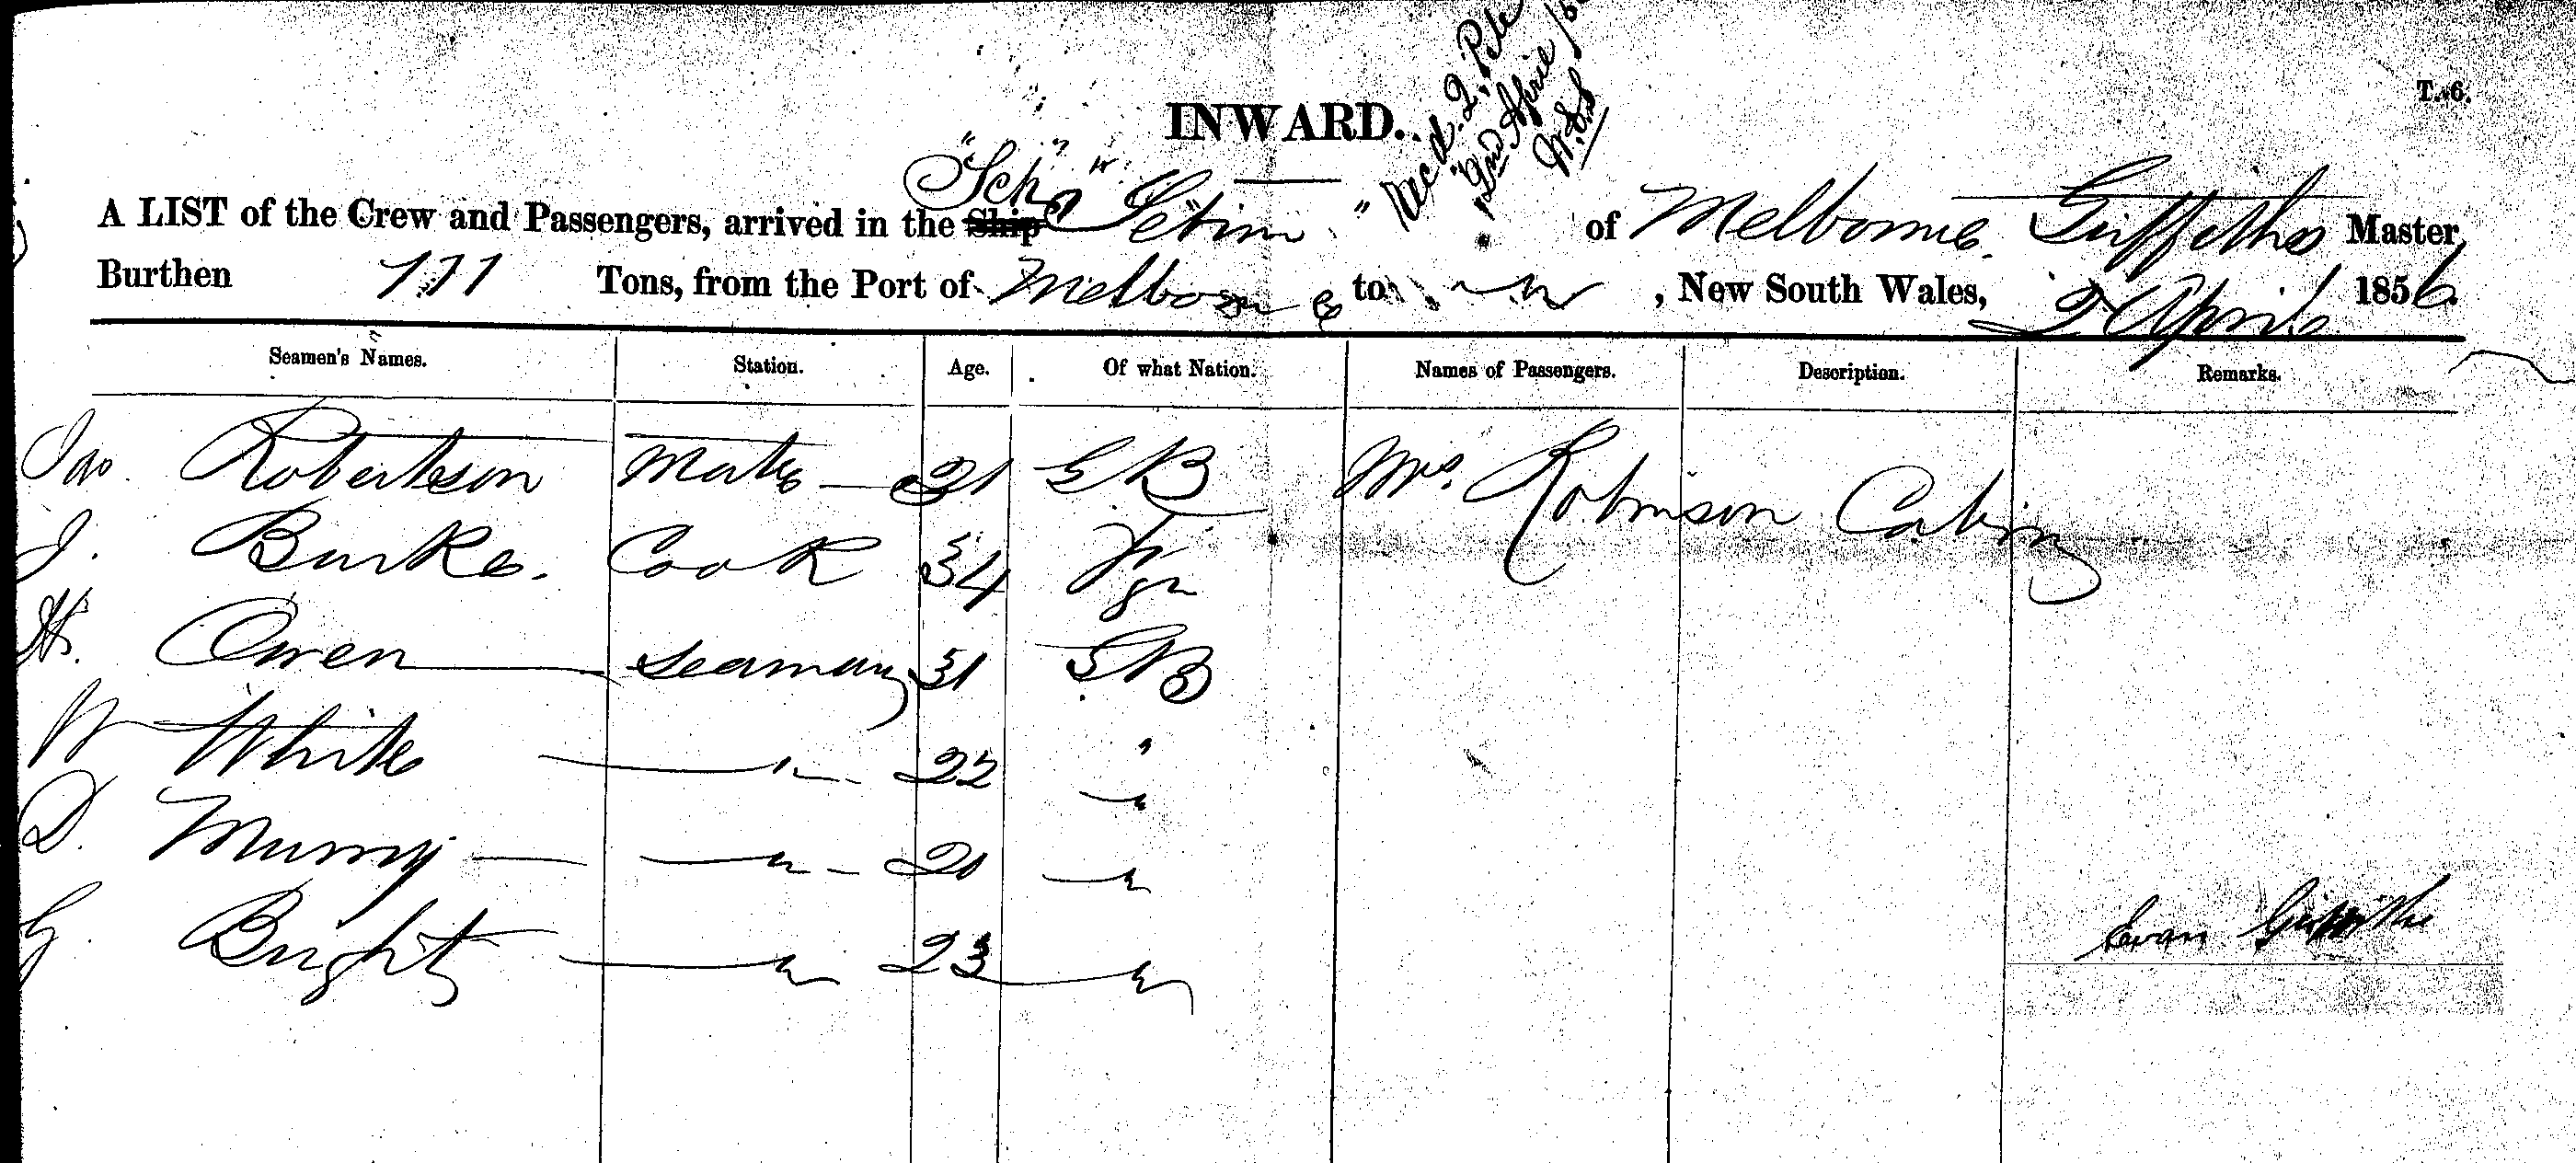 T. 6.
INWARD.
Rec'd 2,
2nd April
"Schr"
A LIST of the Crew and Passengers, arrived in the Ship " " of Melbourne Griffiths Master,
Burthen 111 Tons, from the Port of Melbourne to , New South Wales, 2 April 1856.
Seamen's Names. Station. Age. Of what Nation. Names of Passengers. Description. Remarks.
Jas Robertson Mate 21 GB Mrs. Robinson Cabin
J. Burke. Cook 34
H. Owen Seaman 31 GB
W White — " — 22 "
D. Murray — " — 20 — "
G. Bright — " — 23 — "
Evan Griffiths